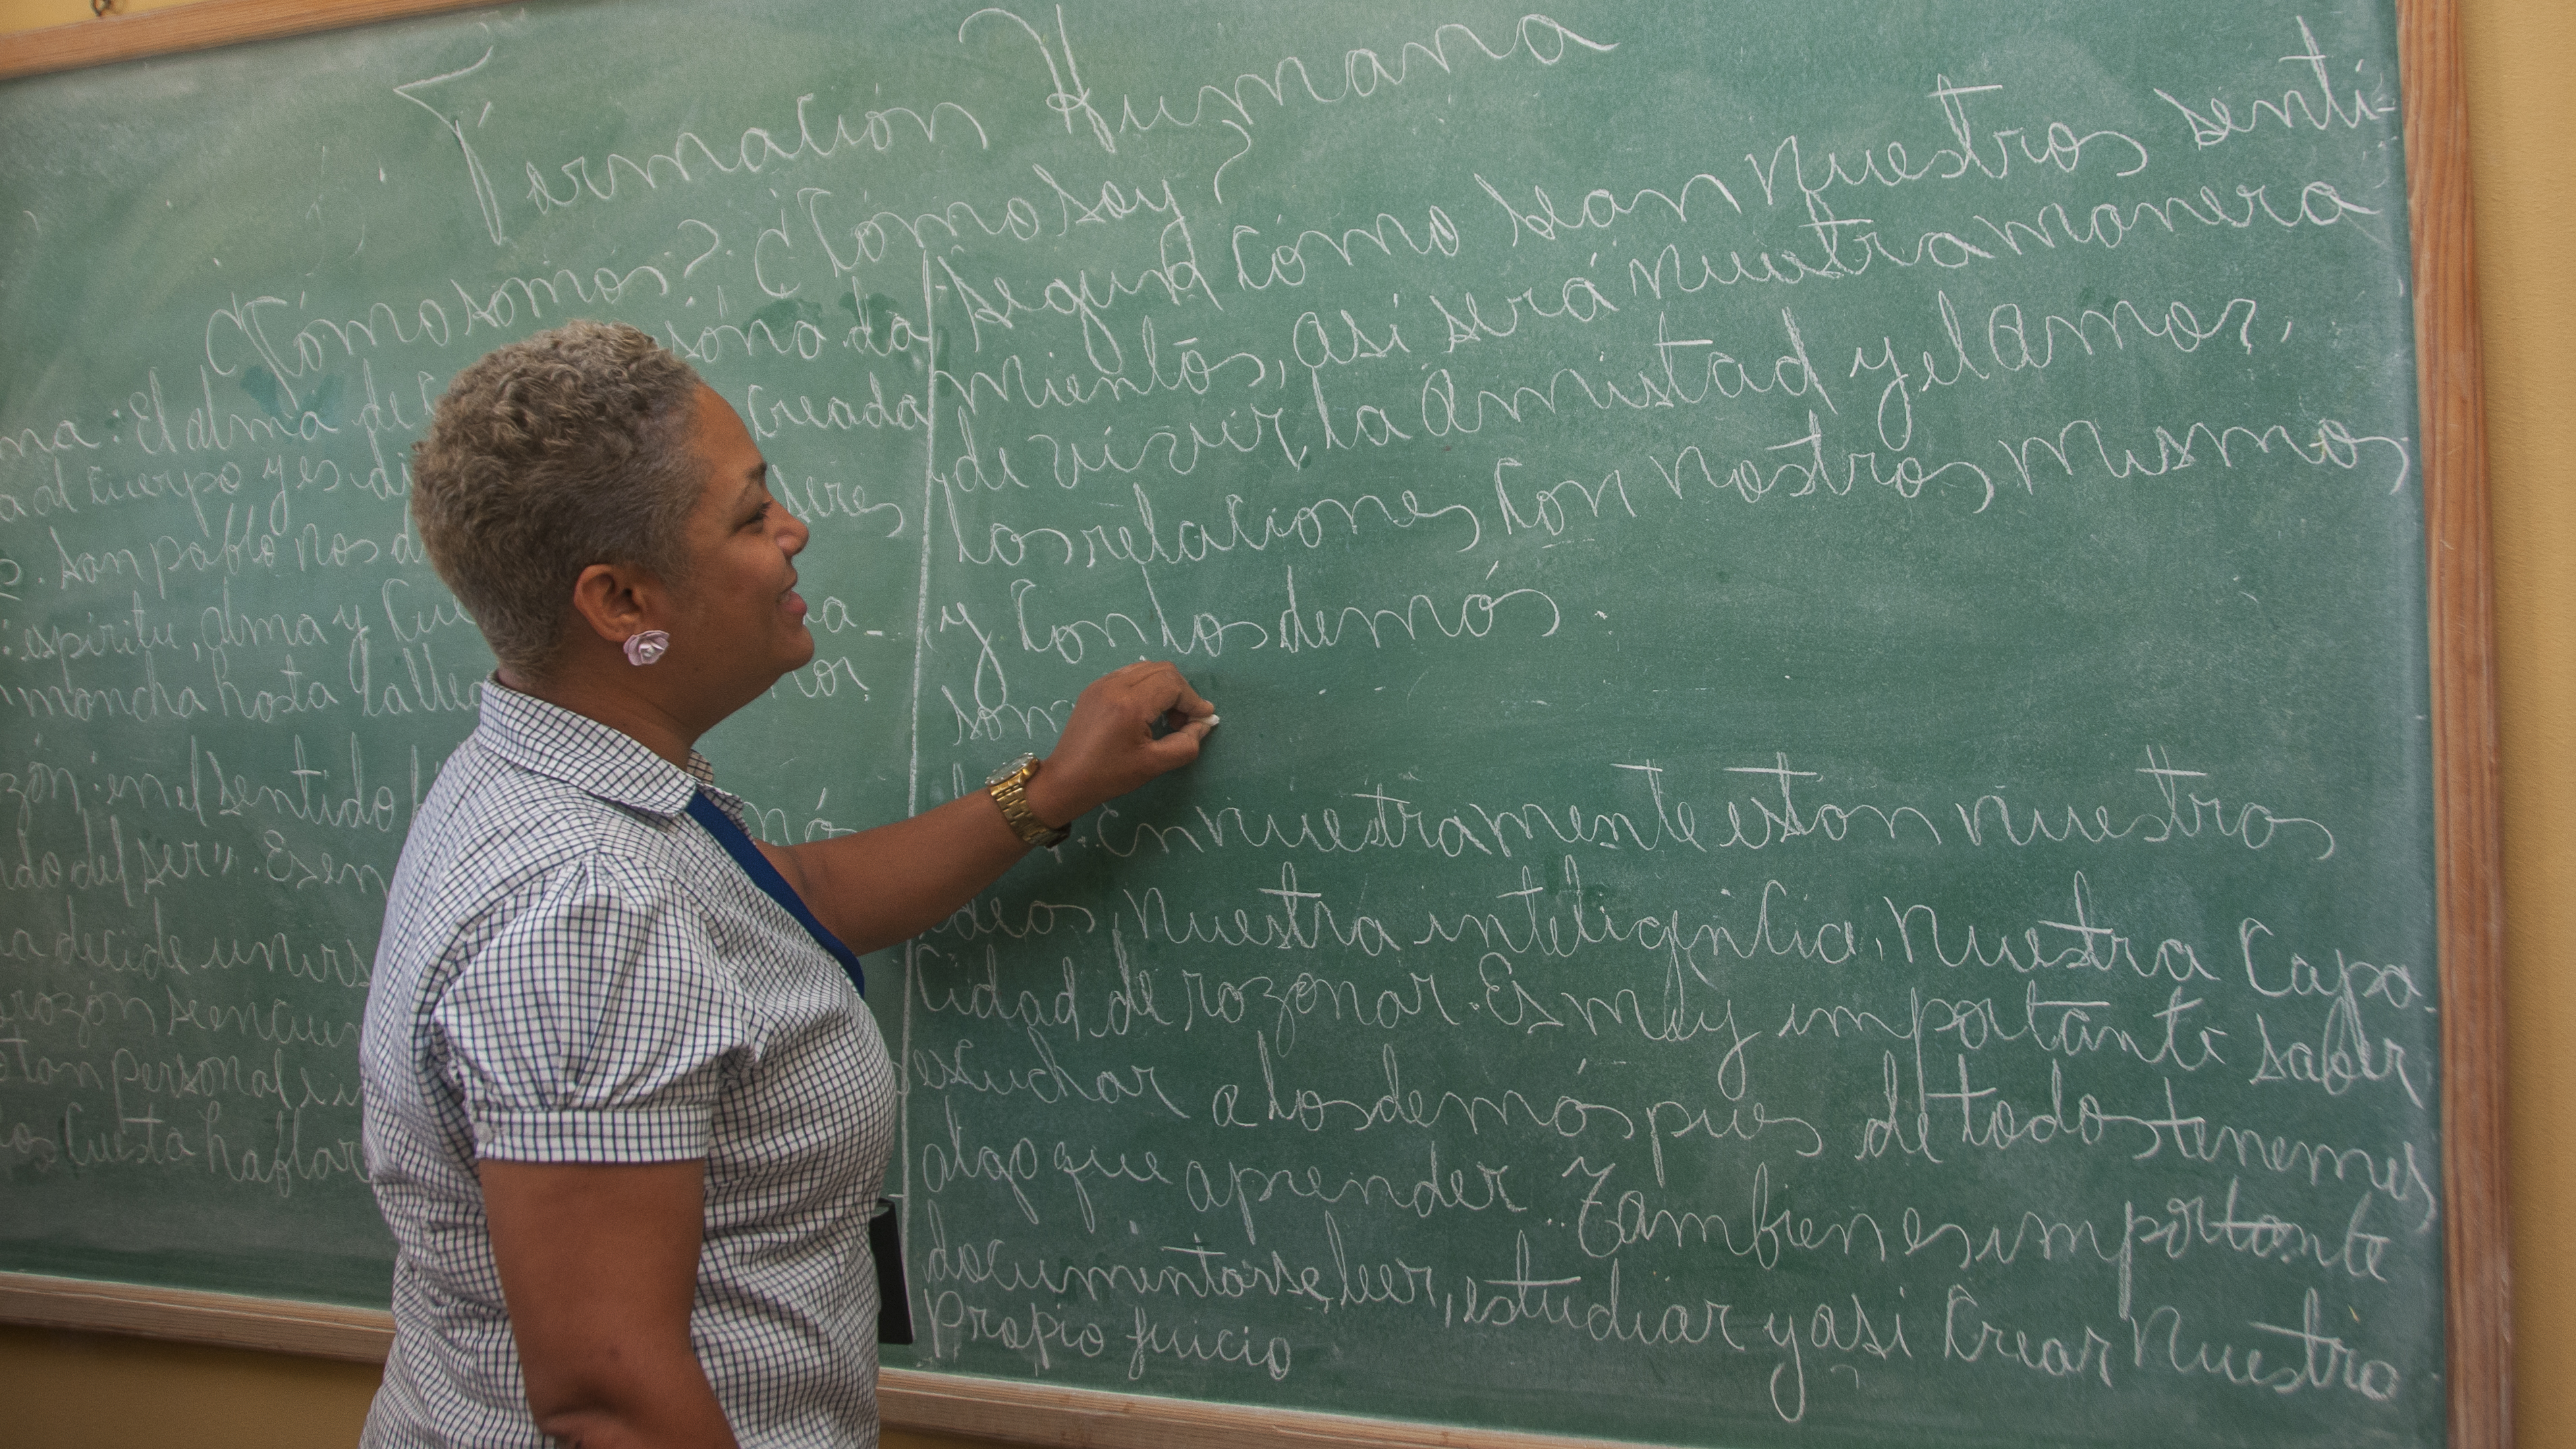 Formación Humana
¿Cómo somos? ¿Cómo soy?
ma: El alma de sona da
a al cuerpo y es creada
San pablo nos seres
: espíritu, alma y
mancha hasta
zón: en el sentido
do del ser". Es en
a decide unirs
orazón se encuen
tan personal e in
os cuesta hablar
según cómo sean nuestros senti-
mientos, asi será nuestra manera
de vivir, la amistad y el amor,
las relaciones con nostros mismos
y con los demás.
som
: en nuestra mente estan nuestras
ideas, nuestra inteligencia, nuestra capa-
cidad de razonar. Es muy importante saber
escuchar a los demás pues de todos tenemos
algo que aprender. Tambien es importante
documentarse, leer, estudiar y asi crear nuestro
propio juicio